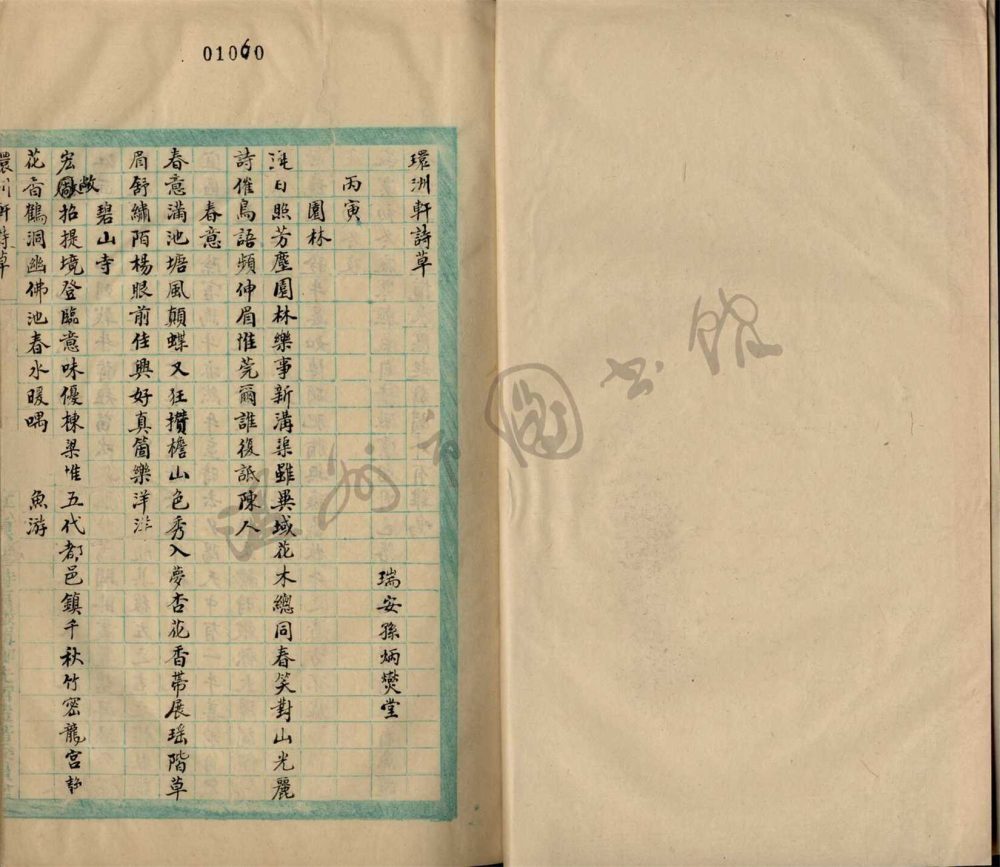 01060
環洲軒詩草
瑞安孫炳燮堂
丙寅
園林
遲日照芳塵園林樂事新溝渠雖異域花木總同春笑對山光麗
詩催鳥語頻伸眉惟莞爾誰復詆陳人
春意
春意滿池塘風顛蝶又狂攢檐山色秀入夢杏花香帶展瑶階草
眉舒繡陌楊眼前佳興好真箇樂洋洋
碧山寺
宏敞招提境登臨意味優棟梁惟五代都邑鎮千秋竹密龍宮静
花香鶴洞幽佛池春水暖喁 魚游
環洲軒詩草
溫州市圖書館